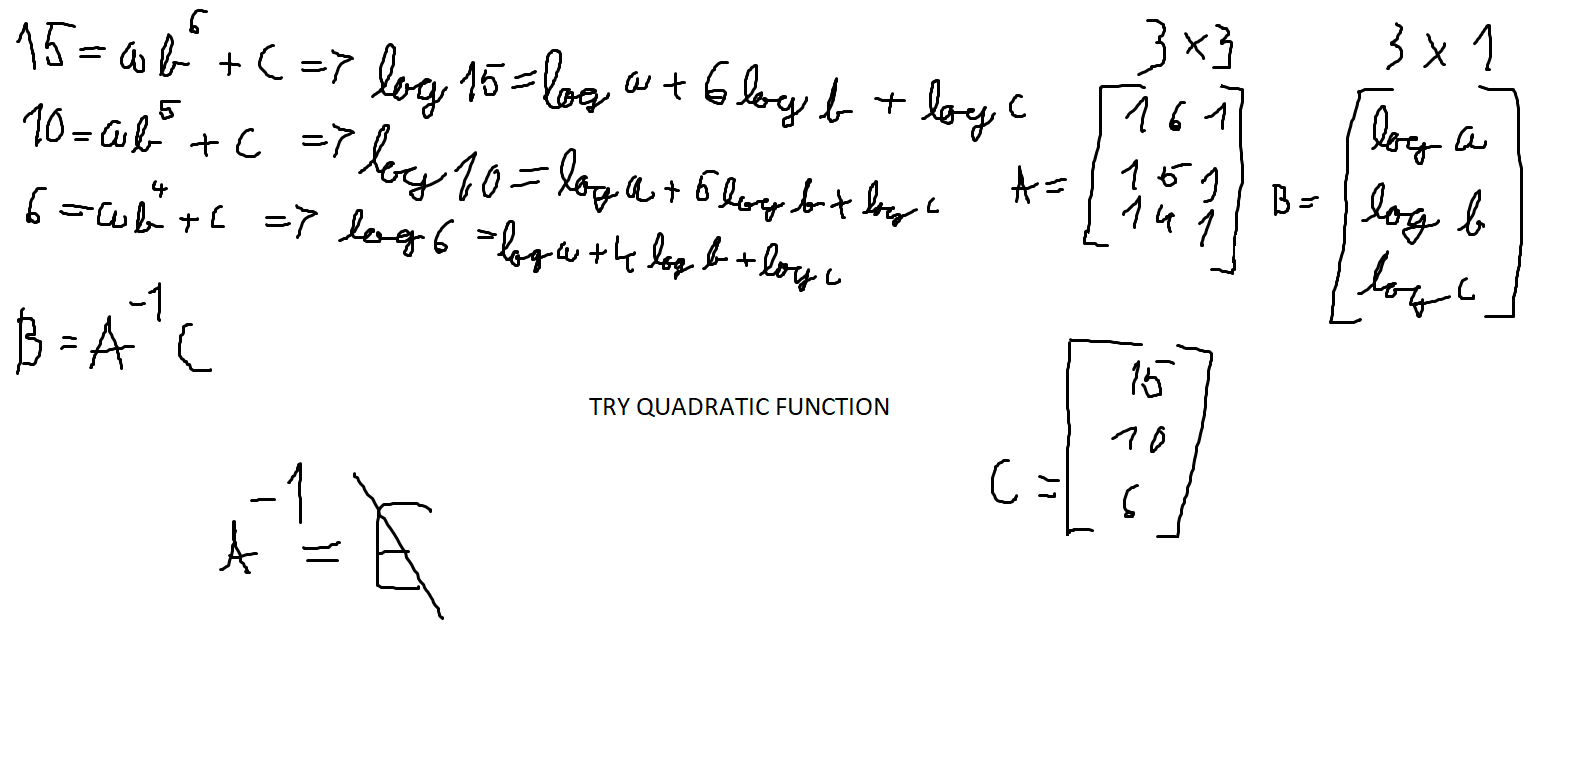 15 = ab^6 + c => log 15 = log a + 6 log b + log c
10 = ab^5 + c => log 10 = log a + 5 log b + log c
6 = ab^4 + c => log 6 = log a + 4 log b + log c
B = A^-1 C
3 x 3
A = [1 6 1
1 5 1
1 4 1]
3 x 1
B = [log a
log b
log c]
TRY QUADRATIC FUNCTION
C = [15
10
6]
A^-1 = E